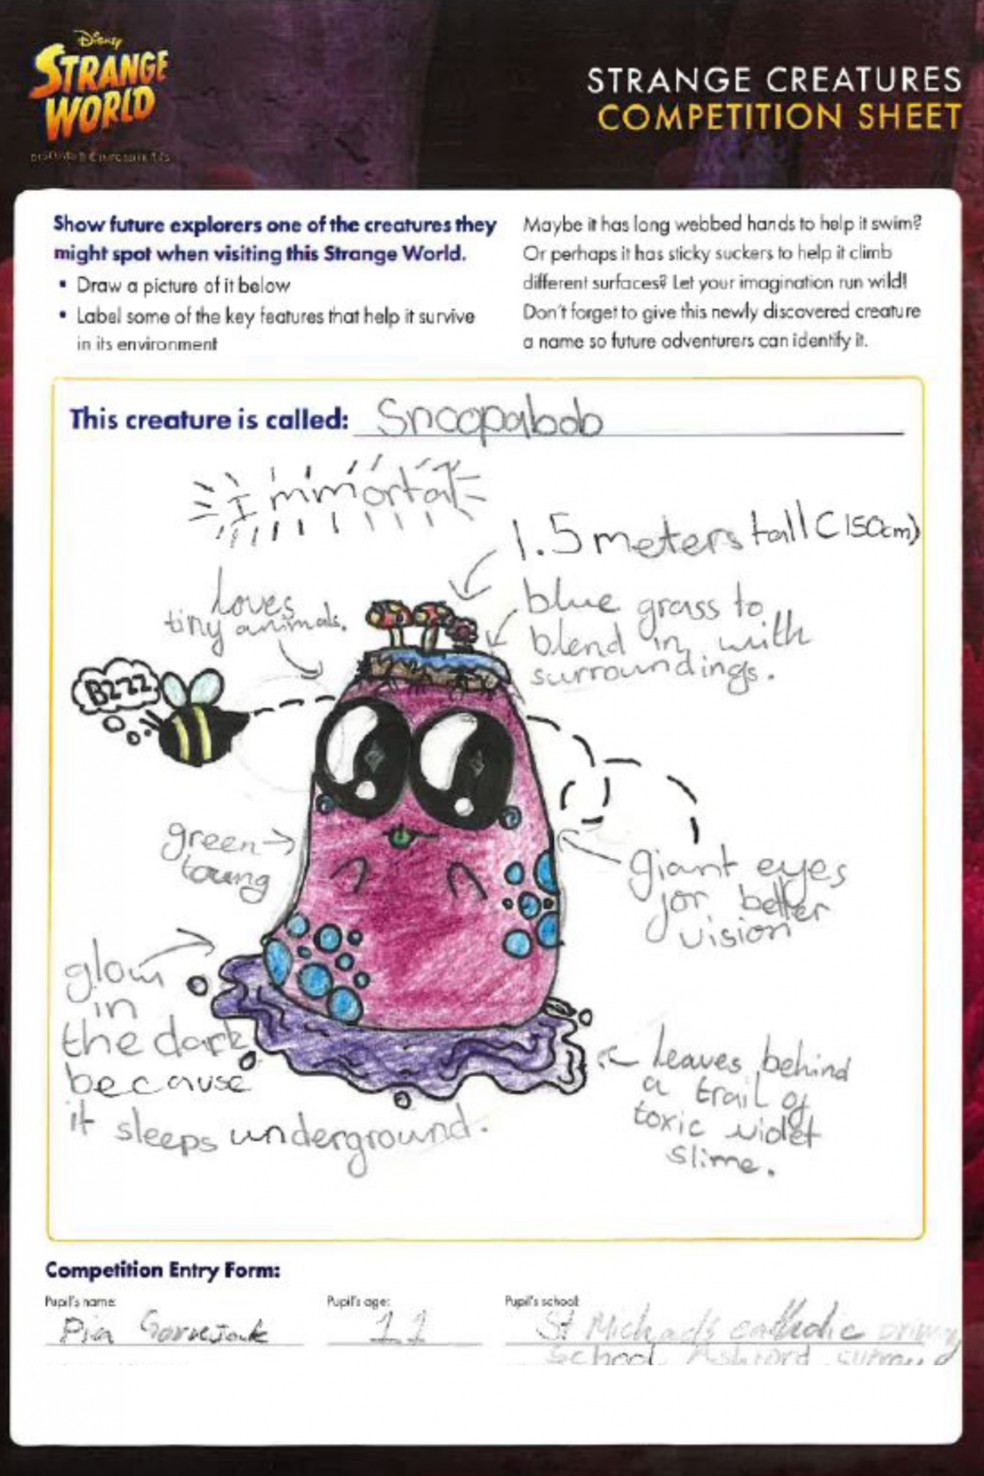 Disney
STRANGE
WORLD
STRANGE CREATURES
COMPETITION SHEET
Show future explorers one of the creatures they
might spot when visiting this Strange World.
• Draw a picture of it below
• Label some of the key features that help it survive
in its environment
Maybe it has long webbed hands to help it swim?
Or perhaps it has sticky suckers to help it climb
different surfaces? Let your imagination run wild!
Don't forget to give this newly discovered creature
a name so future adventurers can identify it.
This creature is called: Snoopabob
Immortal
1.5 meters tall (150cm)
loves
tiny animals.
blue grass to
blend in with
surroundings.
BZZZ
green
toung
giant eyes
for better
vision
glow
in
the dark
because
it sleeps underground.
leaves behind
a trail of
toxic violet
slime.
Competition Entry Form:
Pupil's name:
Pupil's age:
Pupil's school:
Pia
11
St Michaels catholic primary
School Ashford surrey